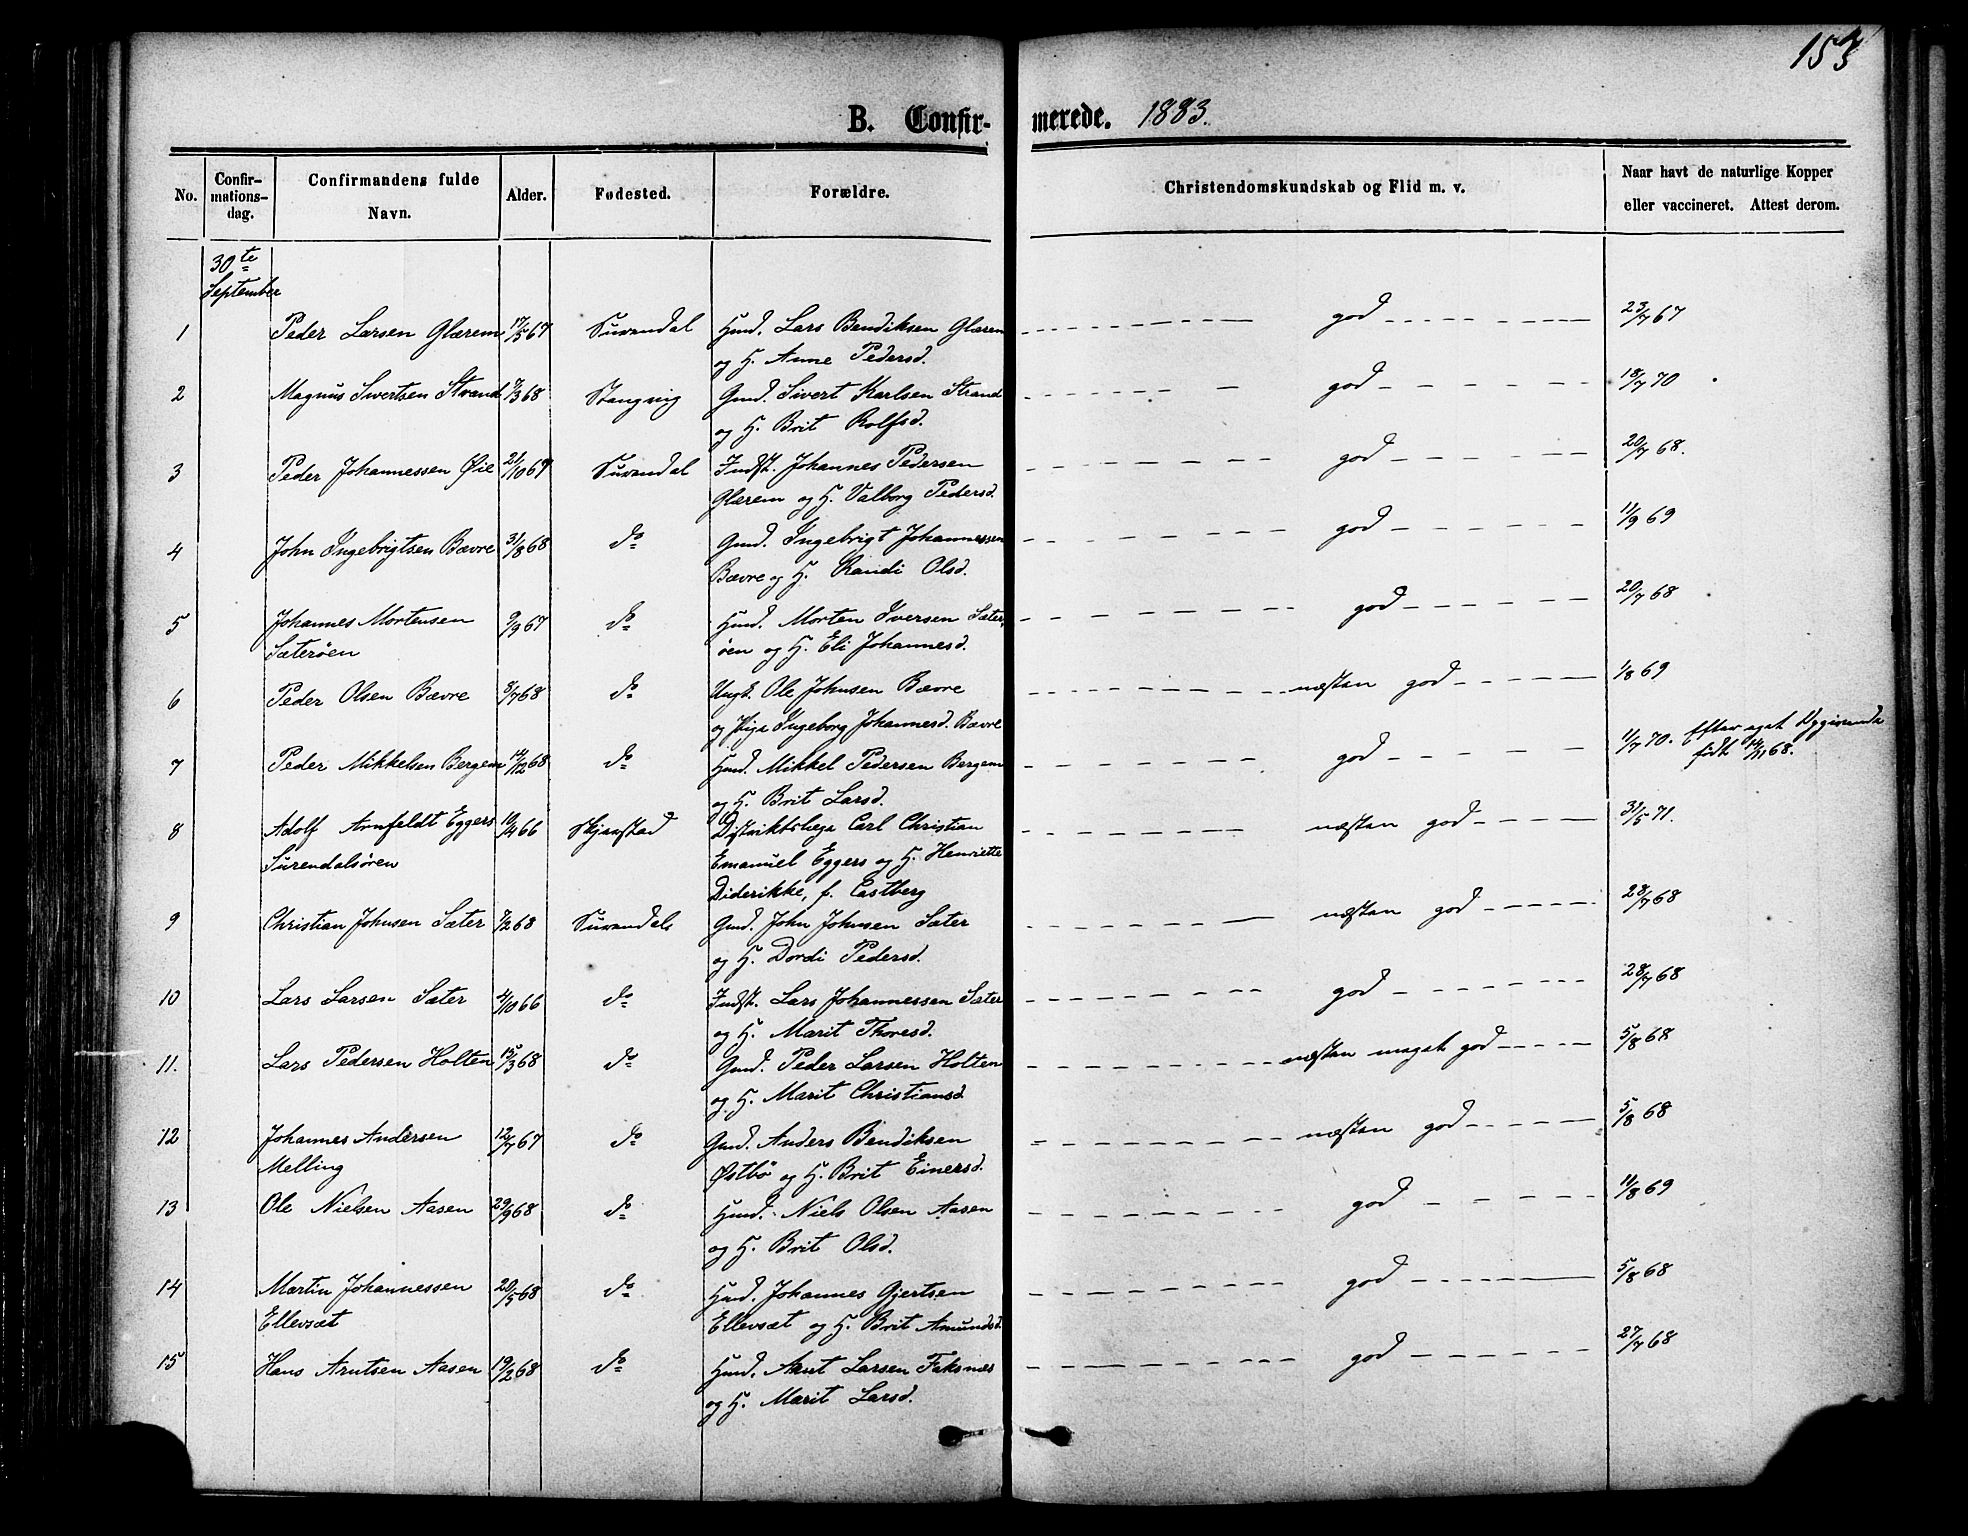 153
B. Confir- merede. 1883.
No. Confir-mations-dag. Confirmandens fulde Navn. Alder. Fødested. Forældre. Christendomskundskab og Flid m. v. Naar havt de naturlige Kopper eller vaccineret. Attest derom.
30te
September
1 Peder Larsen Glærem 17/5 67 Surendal Huud. Lars Bendiksen Glærem god 23/7 67
og H. Anne Pedersd.
2 Magnus Sivertsen Strand 7/3 68 Stangvig Gmd. Sivert Karlsen Strand god 18/7 70
og H. Brit Rolfsd.
3 Peder Johannessen Øie 21/10 67 Surendal Indst. Johannes Pedersen god 20/7 68.
Glærem og H. Valborg Pedersd.
4 John Ingebrigtsen Bævre 31/8 68 do Gmd. Ingebrigt Johannessen god 11/9 69
Bævre og H. Randi Olsd.
5 Johannes Mortensen 9/9 67 do Huud. Morten Iversen Sæter- god 20/7 68
Sæterøen øen og H. Eli Johannesd.
6 Peder Olsen Bævre 8/7 68 do Ungk. Ole Johnsen Bævre næsten god 1/8 69
og Pige Ingeborg Johannesd. Bævre
7 Peder Mikkelsen Bergem 14/12 68 do Huud. Mikkel Pedersen Bergem god 11/7 70. Efter eget Opgivende
og H. Brit Larsd. født 14/11 68.
8 Adolf Arnfeldt Eggers 10/4 66 Skjerstad Distriktslæge Carl Christian næsten god 31/5 71.
Surendalsøren Emanuel Eggers og H. Henriette
Diderikke, f. Castberg
9 Christian Johnsen Sæter 7/2 68 Surendals Gmd. John Johnsen Sæter næsten god 28/7 68
og H. Dordi Pedersd.
10 Lars Larsen Sæter 4/10 66 do Indst. Lars Johannessen Sæter god 28/7 68
og H. Marit Thoresd.
11. Lars Pedersen Holten 15/3 68 do Gmd. Peder Larsen Holten næsten meget god 5/8 68
og H. Marit Christiansd
12 Johannes Andersen 12/7 67 do Gmd. Anders Bendiksen næsten god 5/8 68
Melling Østbø og H. Brit Einersd.
13 Ole Nielsen Aasen 29/9 68 do Huud. Niels Olsen Aasen god 11/8 69
og H. Brit Olsd.
14 Martin Johannessen 20/5 68 do Huud. Johannes Gjertsen god 5/8 68
Ellevsæt Ellevsæt og H. Brit Amundsd.
15 Hans Arntsen Aasen 19/2 68 do Huud. Arnt Larsen Faksnes god 27/7 68
og H. Marit Larsd.